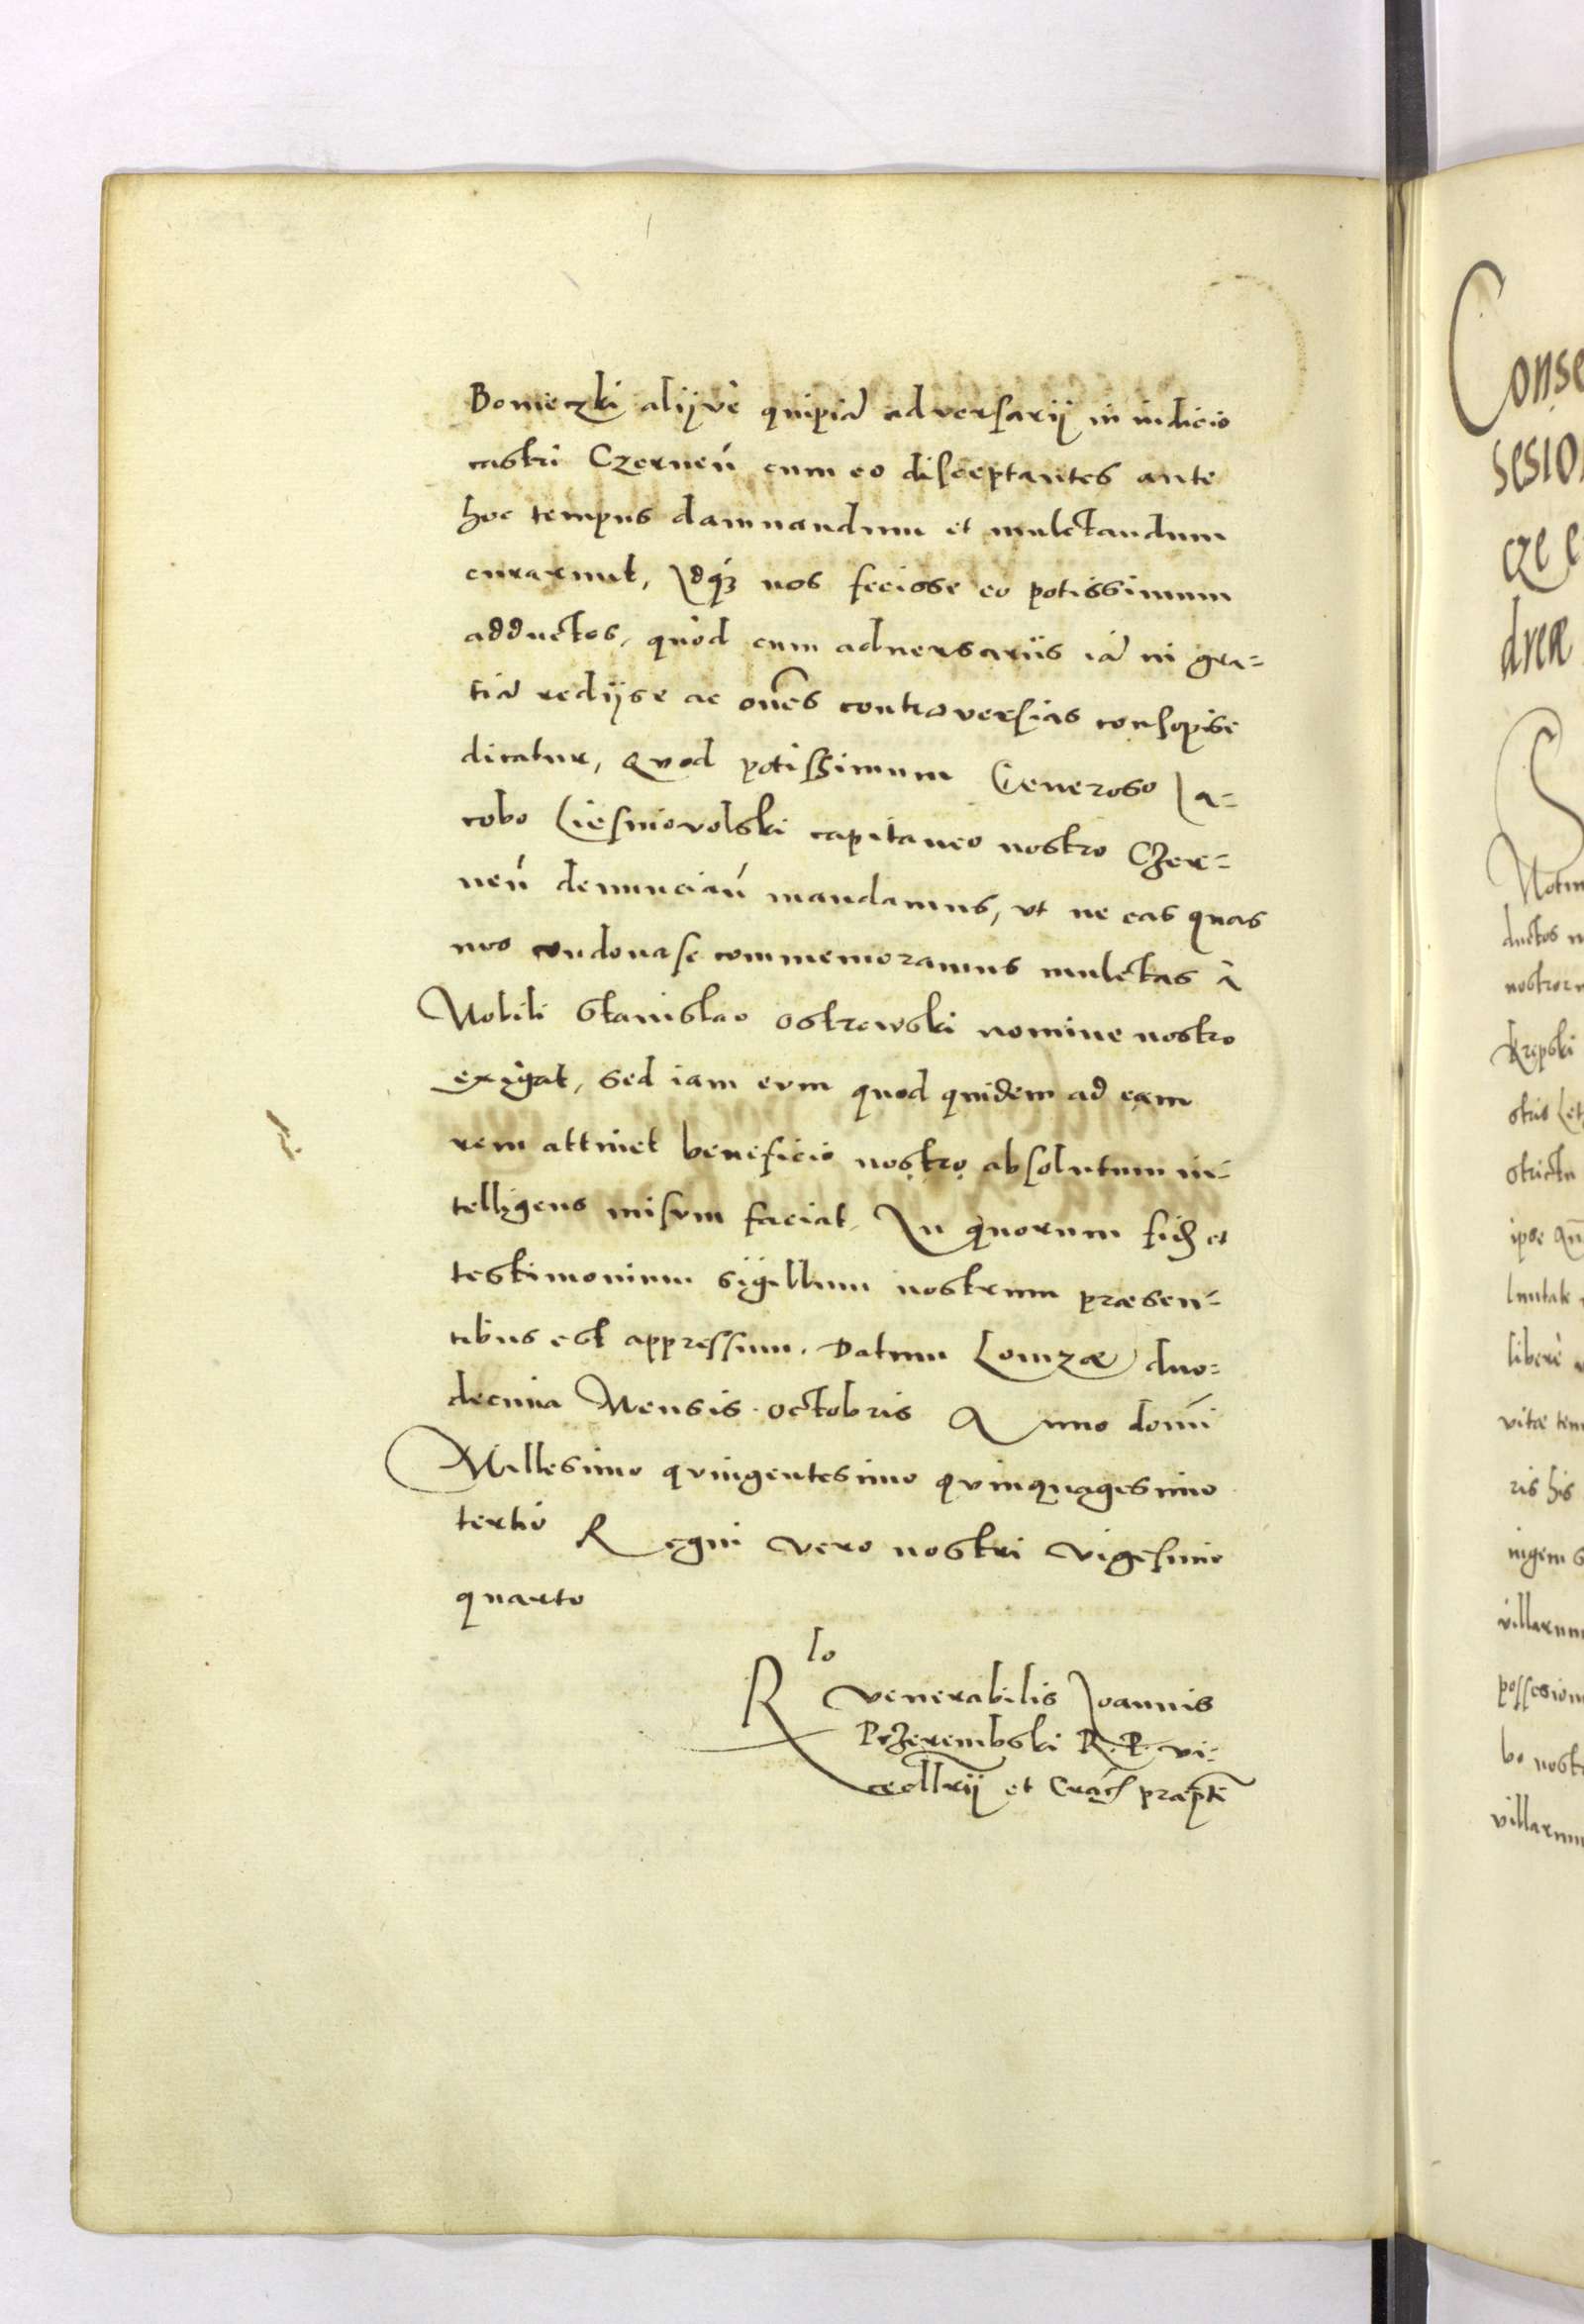 Bonieczki alijvè quipiã adversarij in iudicio
castri Czerneñ cum eo disceptantes ante
hoc tempus damnandum et mulctandum
curarunt, Idq́ꝫ nos fecisse eo potissimum
adductos, quòd cum adnersariis iã in gra=
tiã redijse ac oẽs controversias consopise
dicatur, Quod potissimum Generoso Ja=
cobo Liesniovolski capitaneo nostro Czer=
neñ denunciañ mandamus, vt ne eas quas
nos condonase commemoramus mulctas à
Nobili Stanislao Ostrowski nomine nostro
exigat, sed iam eum quod quidem ad eam
rem attinet beneficio nostro absolutum in=
telligens misum faciat. In quorum fidẽ et
testimonium sigillum nostrum præsen=
tibus est appressum. Datum Lomzæ duo=
decima Mensis Octobris Anno domĩ
Millesimo quingentesimo quinquagesimo
tertio Regni vero nostri vigesimo
quarto
Rlo venerabilis Joannis
Przerembski R. P. vi=
cecllrij et Cracẽ præpti
Conse
sesion
cze e
dreæ
Notum
ductos n
nostror
Krzpski
stris
stricta
ipse
libere
vitæ tem
ris his
villarum
possesion
bo nost
villarum